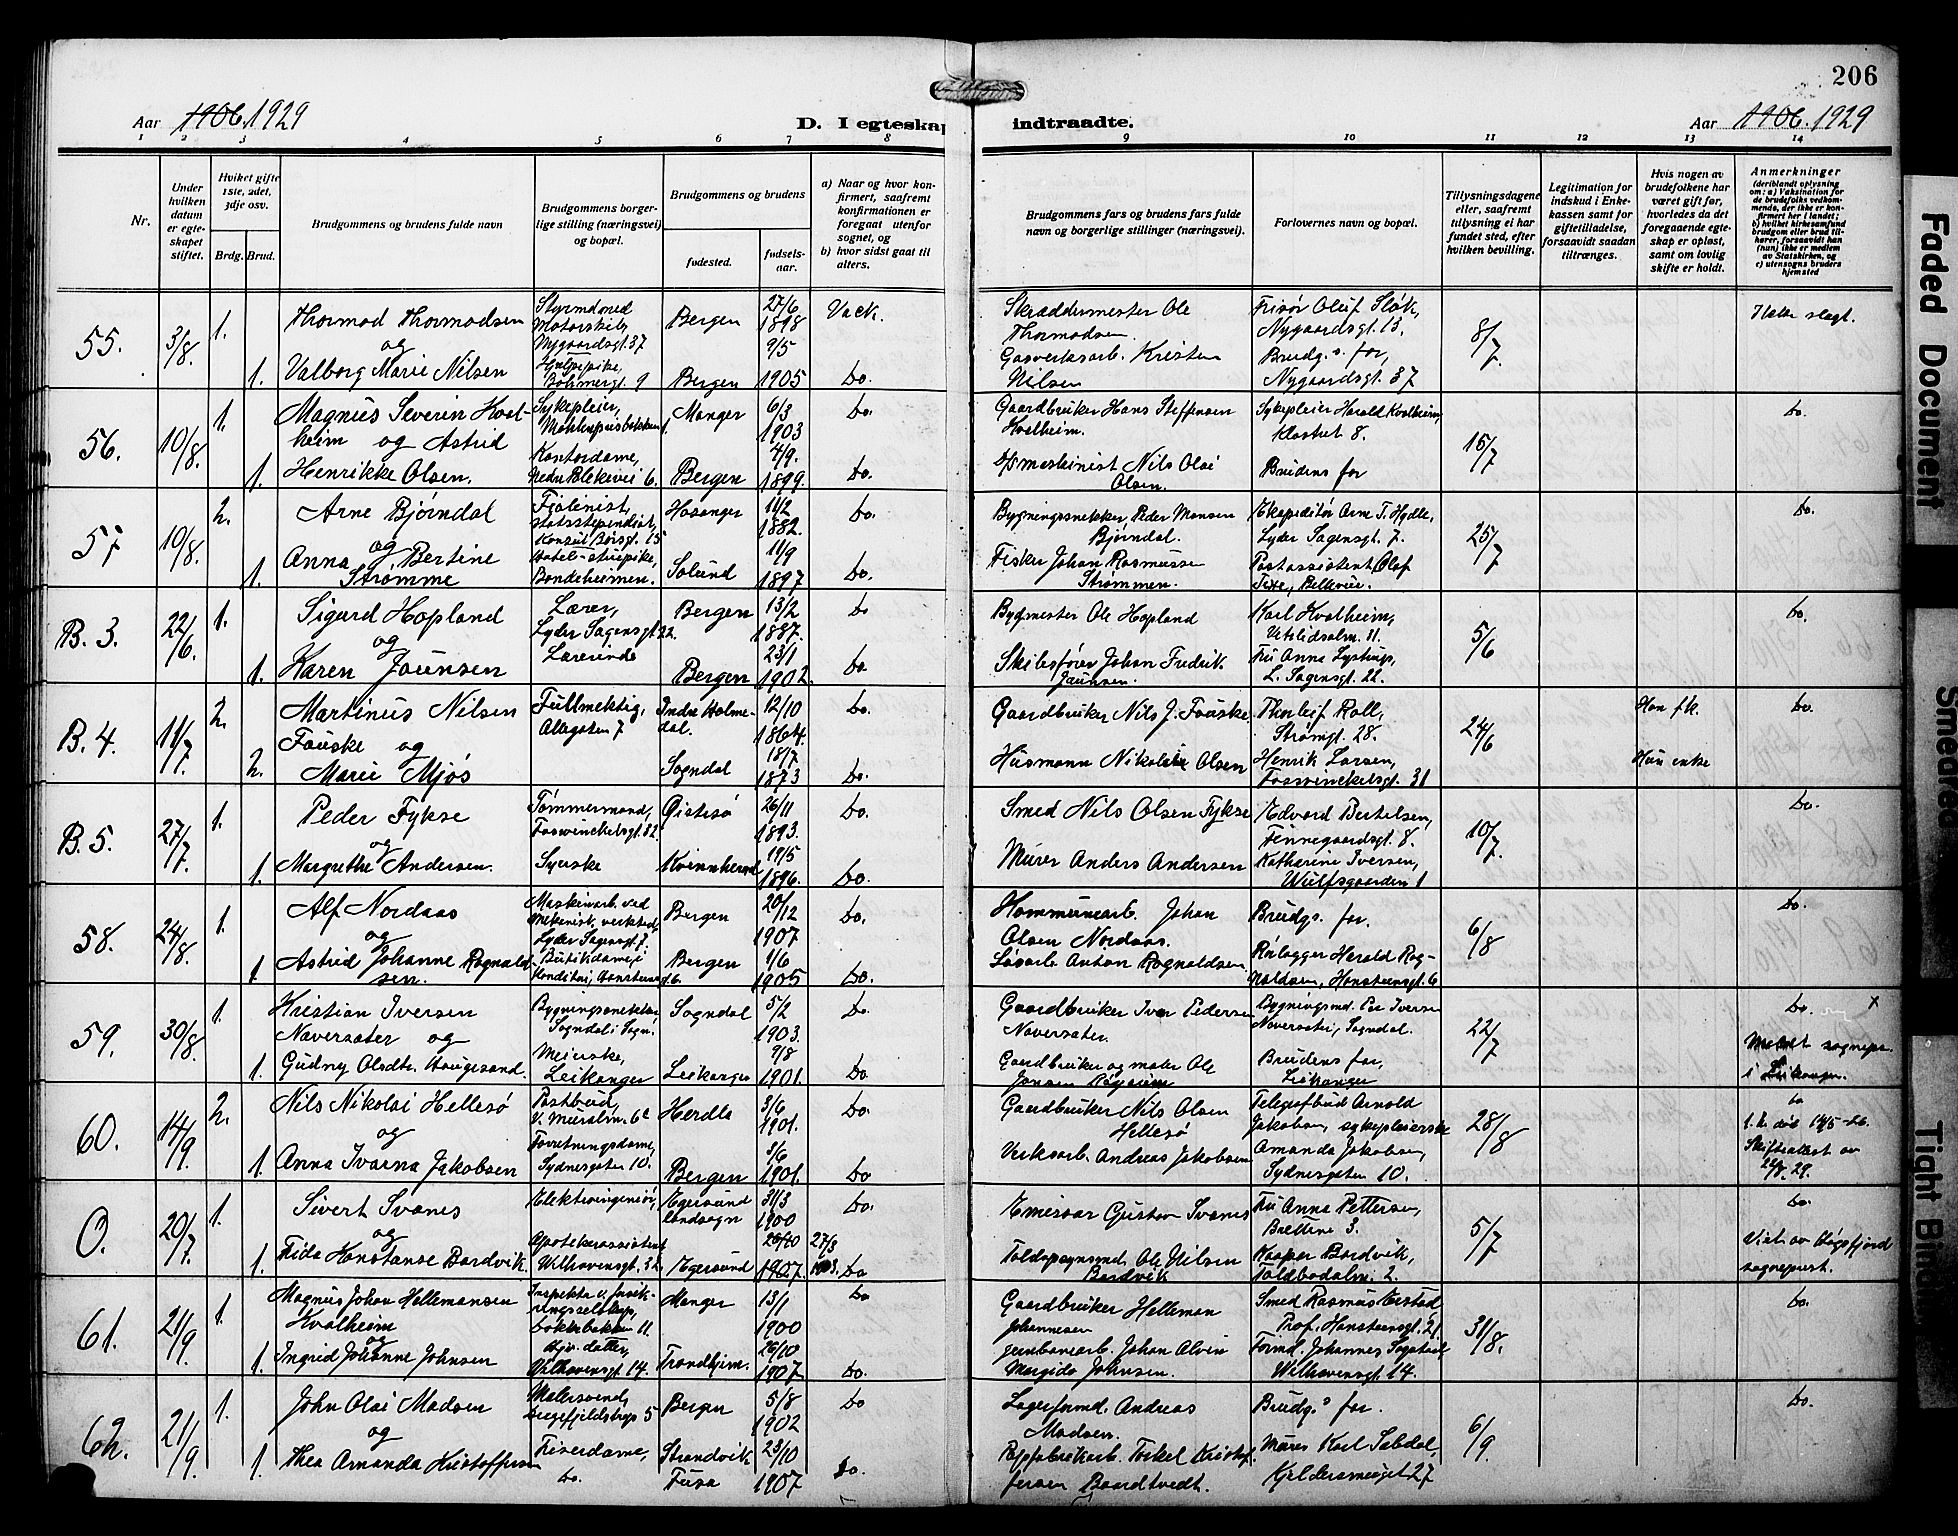 206
Aar 1906. 1929
D. I egteskap
indtraadte.
Aar 1906. 1929
1 2 3 4 5 6 7 8 9 10 11 12 13 14
Nr.
Under hvilken datum er egteskapet stiftet.
Hviket gifte 1ste, 2det, 3dje osv.
Brdg. Brud.
Brudgommens og brudens fulde navn
Brudgommens borgerlige stilling (næringsvei) og bopæl.
Brudgommens og brudens
fødested.
fødselsaar.
a) Naar og hvor konfirmert, saafremt konfirmationen er foregaat utenfor sognet, og
b) hvor sidst gaat til alters.
Brudgommens fars og brudens fars fulde navn og borgerlige stillinger (næringsvei).
Forlovernes navn og bopæl.
Tillysningsdagene eller, saafremt tillysning ei har fundet sted, efter hvilken bevilling.
Legitimation for indskud i Enkekassen samt for giftetilladelse, forsaavidt saadan tiltrænges.
Hvis nogen av brudefolkene har været gift før, hvorledes da det foregaaende egteskap er opløst, samt om lovlig skifte er holdt.
Anmerkninger
(deriblandt oplysning om: a) Vaksination for de brudefolks vedkommende, der ikke er konfirmert her i landet; b) hvilket kirkesamfund brudgom eller brud tilhører, forsaavidt han (hun) ikke er medlem av Statskirken, og c) utensogns bruders hjemsted
55. 3/8 1. Thormod Thormodsen Styrmand med Bergen 27/6 1898 Skræddermester Ole Thormodsen Frisør Oluf Sløk, Nygaardsgt. 13. 8/7 Ikke slegt.
og Motorskib, Nygaardsgt. 37
1. Valborg Marie Nilsen Hjelpepike, Bergen 9/5 1905 Do. Gasverksarb. Kristen Nilsen Brudg.s far, Nygaardsgt. 37
56. 10/8. 1. Magnus Severin Hvalheim og Astrid Sykepleier, Manger 6/3 1903 Do. Gaardbruker Hans Steffensen Kvalheim. Sykepleier Harald Kvalheim, Klostret 8. 15/7 Do.
1. Henrikke Olsen. Kontordame, Nedre Blekevei 6. Bergen 4/9. 1899. Do. Maskinist Nils Olai Olsen. Brudens far
57 10/8. 2. Arne Bjørndal Fiolinist, statsstipendiat, Konsul Børsgt. 15 Hosanger 11/2 1882. Do. Bygningssnekker Peder Monsen Bjørndal. Ekspeditør Arne T. Hydle, Lyder Sagensgt. 7. 25/7 Do.
og
1. Anna Bertine Strømme Hotel-stuepike, Bondeheimen. Solund 11/9 1897 Do. Fisker Johan Rasmussen Strømmen. Postassistent Olaf Bellevue.
B. 3. 22/6. 1. Sigurd Hopland Lærer, Lyder Sagensgt. 22. Bergen 13/2 1887. Do Bygmester Ole Hopland Karl Kvalheim, 11. 5/6 Do.
og
1. Karen Jaunsen Lærerinde Bergen 23/1 1902. Do Skibsfører Johan Fredrik Jaunsen. Fru Anna Lystrup, L. Sagensgt. 22.
B. 4. 11/7. 2. Martinus Nilsen Fullmektig, Allegaten 7 Indre Holmedal. 12/10 1864. Do. Gaardbruker Nils J. Fouske Thorleif Roll, Strømgt. 28. 24/6 Han fk. Do.
Fouske og
2. Marie Mjøs Sogndal 18/7 1873 Do. Husmann Nikolai Olsen Henrik Larsen, Fosswinckelsgt. 31 Hun enke
B. 5. 27/7. 1. Peder Fykse Tømmermand, Fosswinckelsgt. 32. Øistesø 26/11 1893. Do. Smed Nils Olsen Fykse Edvard Bertelsen, Finnegaardsgt. 8. 10/7. Do.
og
1. Margrethe Andersen. Syerske Kvinnherad 19/5 1896. Do. Murer Anders Andersen Katharine Iversen, Wulfsgaarden 1
58. 24/8. 1. Alf Nordaas Maskinarb. ved mekanisk verksted, Lyder Sagensgt. 7. Bergen 20/12 1907 Do. Kommunearb. Johan Olsen Nordaas. Brudgs. far. 6/8 Do.
og
1. Astrid Johanne Rognaldsen. Butikdame i konditori, Bergen 1/6 1905 Do. Løsarb. Anton Rognaldsen, Rørlægger Harald Rognaldsen, Hansteensgt. 6
59. 30/8 1. Kristian Iversen Bygningssnekker Sogndal i Sogn. Sogndal 5/2 1903. Do. Gaardbruker Iver Pedersen Navarsæter. Bygningssmd. Per Iversen Navarsæter, Sogndal. 22/7 Do. x
Navarsæter og
1. Gudny Olsdtr. Haugesand. Meierske, Leikanger Leikanger 9/8 1901. Do Gaardbruker og maler Ole Jansen Brudens far, Leikanger Meldt sognepr. i Leikanger.
60. 14/9. 2. Nils Nikolai Hellesø Postbud, V. Muralm. 6c Herdla 3/6 1901. Do. Gaardbruker Nils Olsen Hellesø Telegrafbud Arnold Jakobsen, sykepleierske 28/8 Do
og
1. Anna Ivarna Jakobsen Forretningsdame, Sydnesgaten 10. Bergen 3/6 1901. Do Verksarb. Andreas Jakobsen Amanda Jakobsen, Sydnesgaten 10. Skifteattest av
O. 20/7. 1. Sivert Svanes Elektroingeniør, Egersund landsogn 31/3 1900 Do. Emissær Gustav Svanes Fru Anna Pettersen, Brettene 3. 5/7 Do.
og
1. Frida Konstanse Bardvik. Apotekerassistent Welhavensgt. 32 Egersund 26/10 1907. 27/3 1903. Do Toldopsynsmd. Ole Nilsen Bardvik Kasper Bardvik, Toldbodalm. 2. Viet av sogneprest.
61. 21/9. 1. Magnus Johan Hellemansen Kvalheim Inspektør v. forsikringsselskap, 11. Manger 13/1 1900 Do Gaardbruker Helleman Johannesen Smed Rasmus Prof. Hansteensgt. 21. 31/8. Do.
og
1. Ingrid Johanne Johnsen datter, Welhavensgt. 14. Trondhjem. 26/10 1907. Do. Jernbanearb. Johan Alvin Margido Johnsen. Formd. Johannes Welhavensgt. 14.
62. 21/9. 1. John Olai Madsen Malersvend, 5 Bergen 5/8 1902 Do Lagerformd. Andreas Madsen. Brudg.s far. 6/9 Do.
og
1. Thea Amanda Kristoffersen Friserdame, Do. Strandvik Fusa 23/10 1907 Do. Pappfabrikarb. Torkel Kristoffersen Baardtvedt. Murer Karl Sæbdal, Kjellersmuget 27
Faded Document
Smeared
Tight Bind